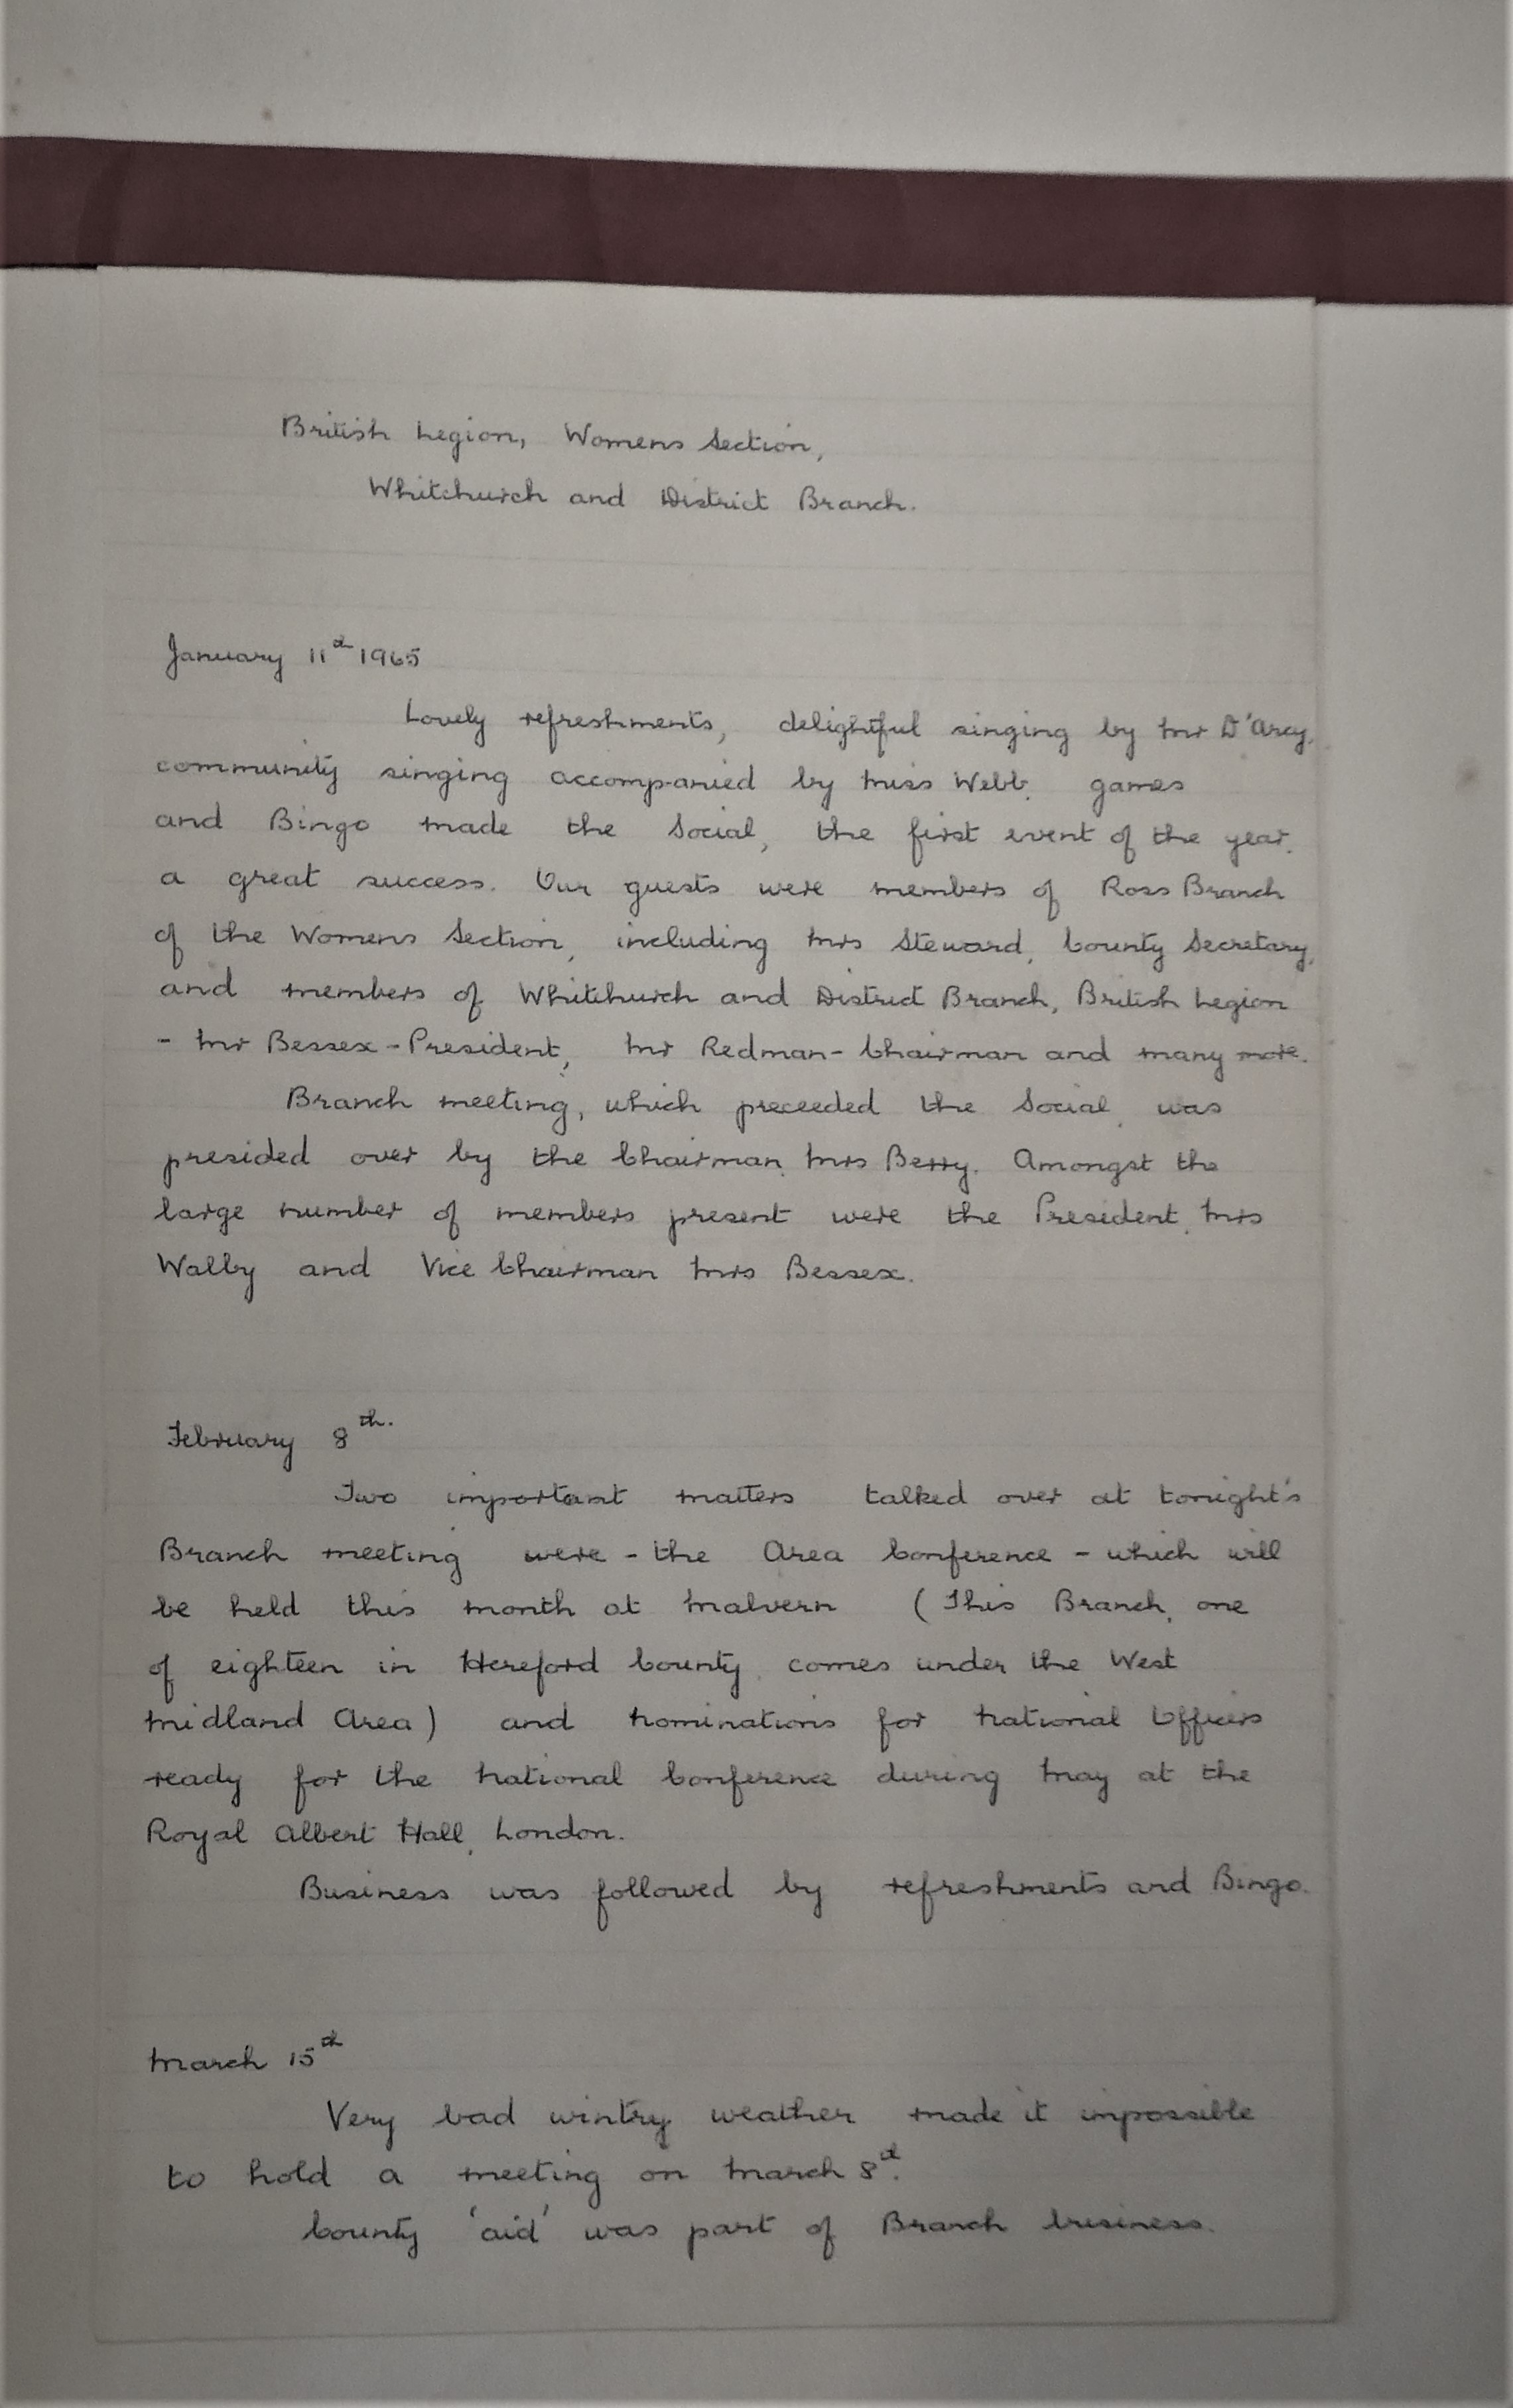 British Legion, Womens Section,
Whitchurch and District Branch.
January 11th 1965
Lovely refreshments, delightful singing by Mr D'Arcy,
community singing accompanied by Miss Webb, games
and Bingo made the Social, the first event of the year,
a great success. Our guests were members of Ross Branch
of the Womens Section, including Mrs Steward, County Secretary,
and members of Whitchurch and District Branch, British Legion
- Mr Bessex - President, Mr Redman - Chairman and many more.
Branch meeting, which preceeded the Social, was
presided over by the Chairman, Mrs Berry. Amongst the
large number of members present were the President, Mrs
Walby and Vice Chairman Mrs Bessex.
February 8th.
Two important matters talked over at tonight's
Branch meeting were - the Area Conference - which will
be held this month at Malvern (This Branch, one
of eighteen in Hereford County, comes under the West
Midland Area) and nominations for National Officers
ready for the National Conference during May at the
Royal Albert Hall, London.
Business was followed by refreshments and Bingo.
March 15th
Very bad wintry weather made it impossible
to hold a meeting on March 8th.
County 'aid' was part of Branch business.